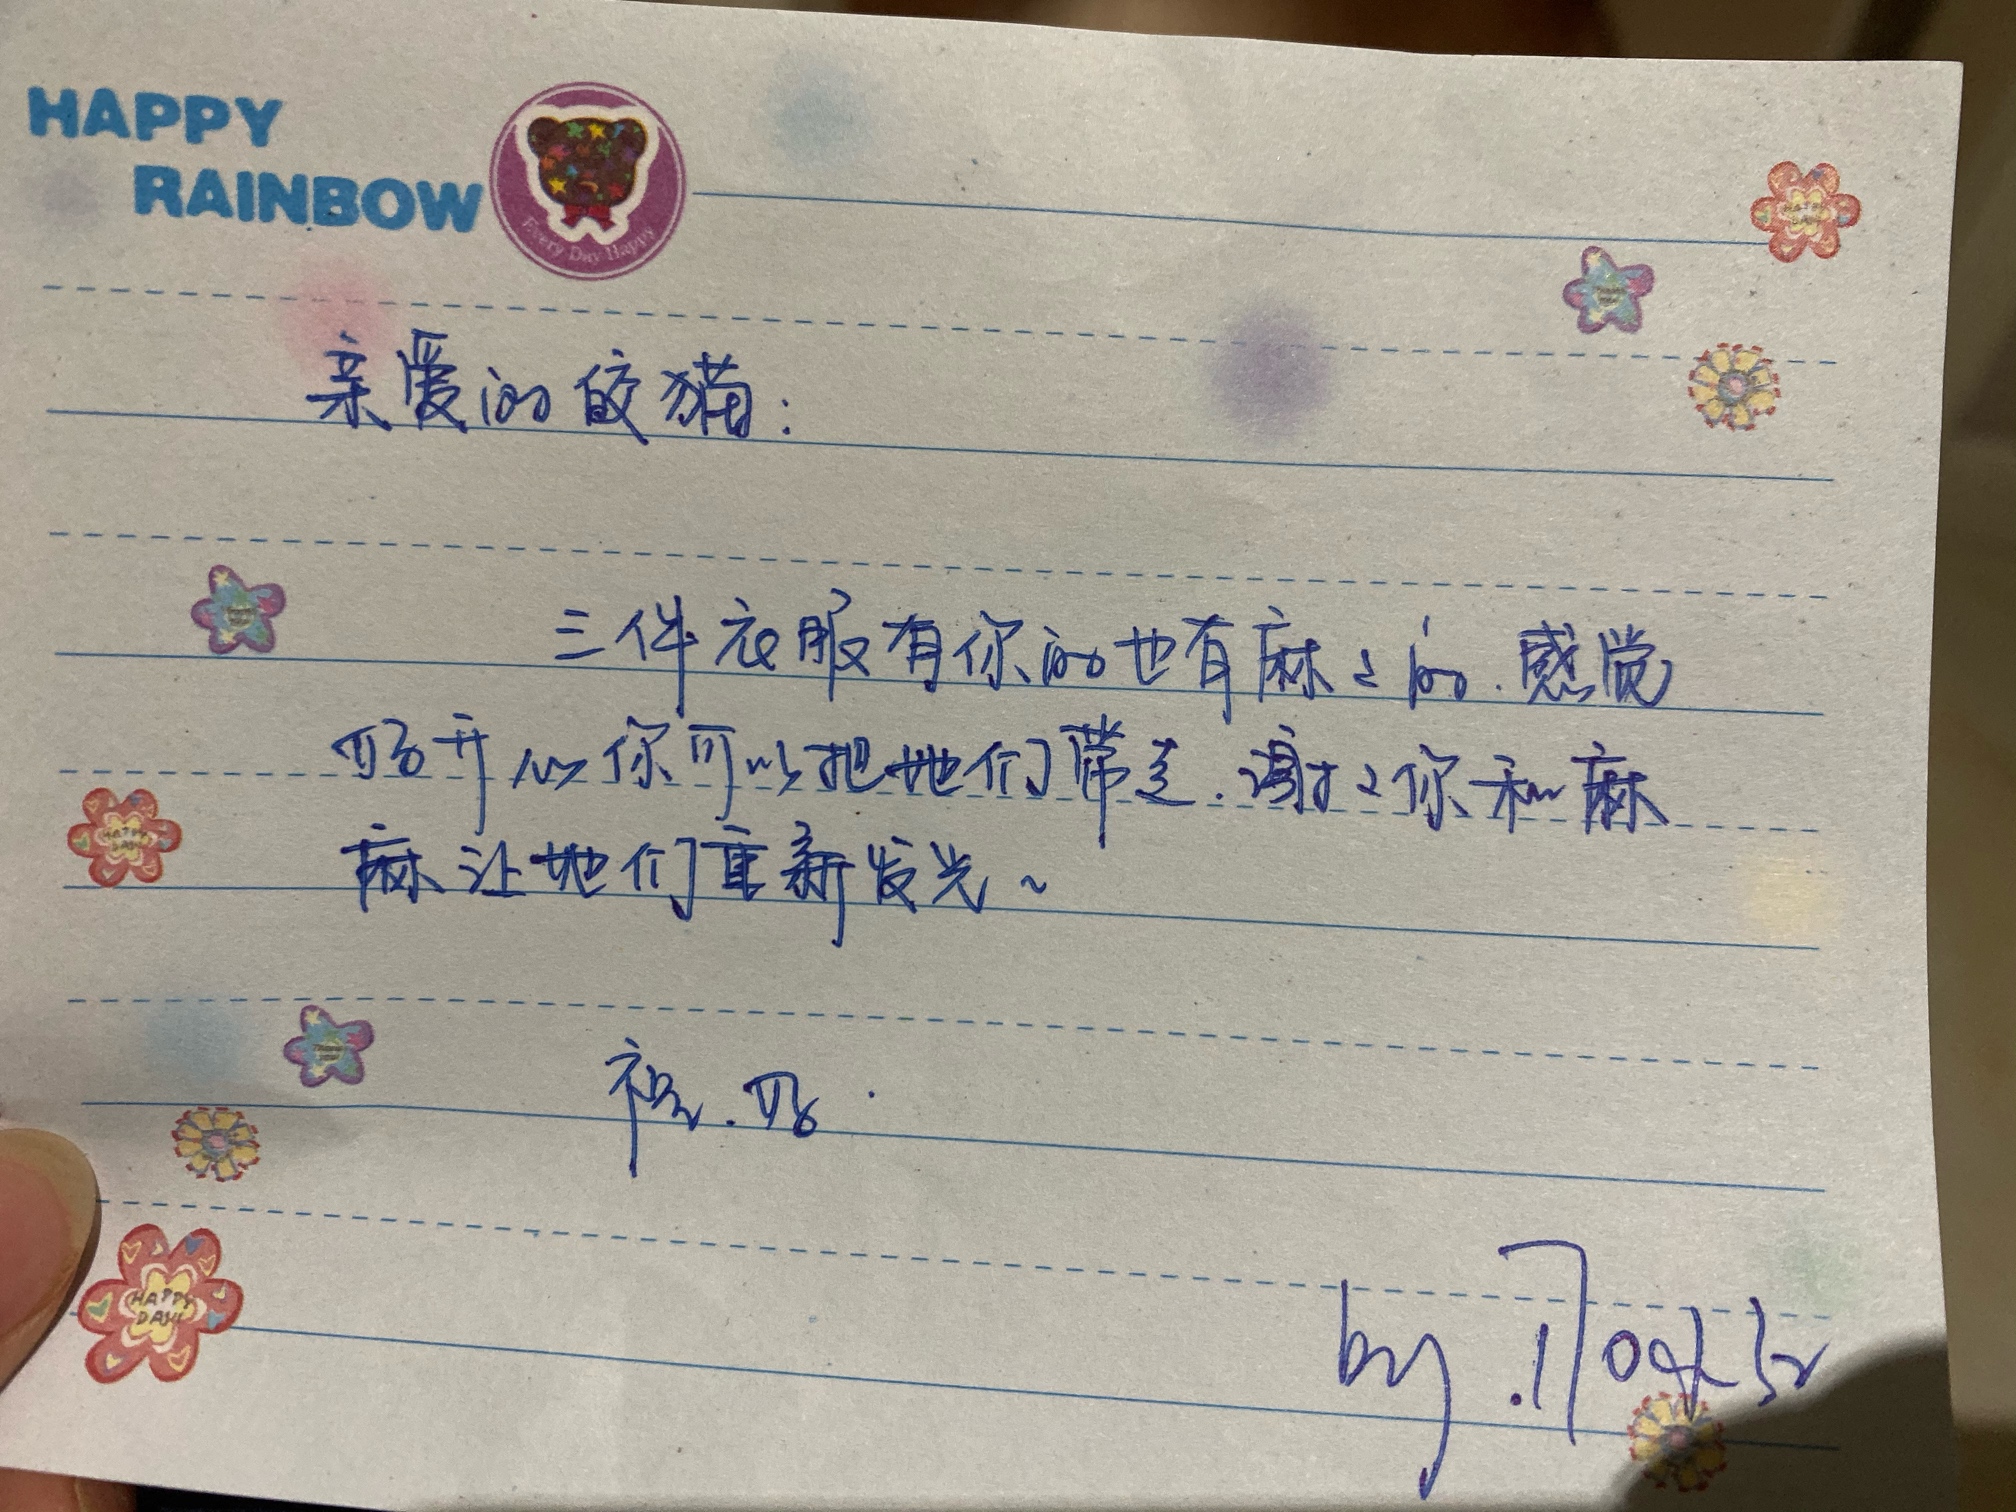 HAPPY
RAINBOW
Every Day Happy
HAPPY
DAY!
亲爱的皎猫：
三件衣服有你的也有麻々的.感觉
好开心你可以把她们带走.谢々你和麻
麻让她们重新发光~
祝.好.
HAPPY
DAY!
HAPPY
DAY!
by.